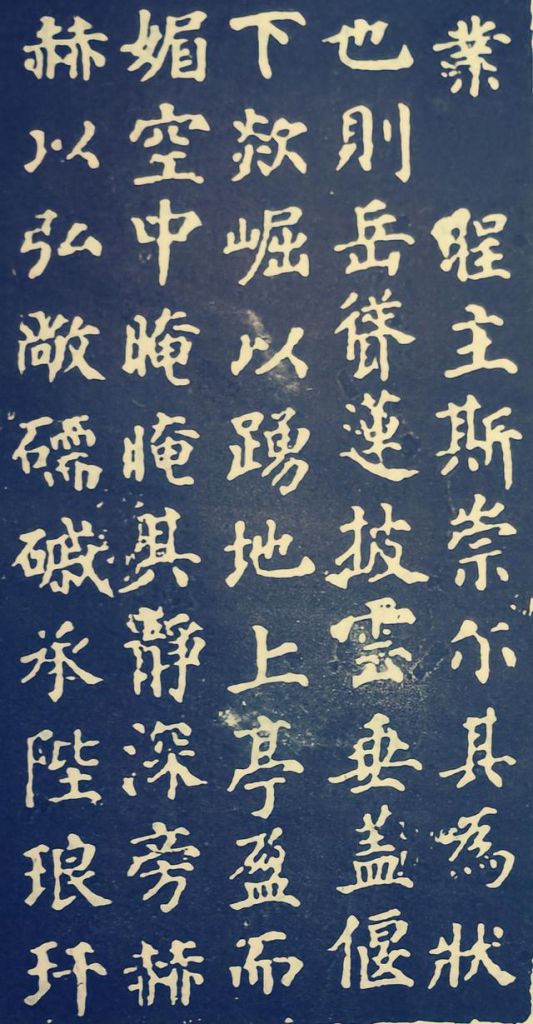 業 聖主斯崇尔其為狀
也則岳聳蓮披雲垂蓋偃
下欻崛以踴地上亭盈而
媚空中晻晻其靜深旁赫
赫以弘敞礝磩承陛琅玕